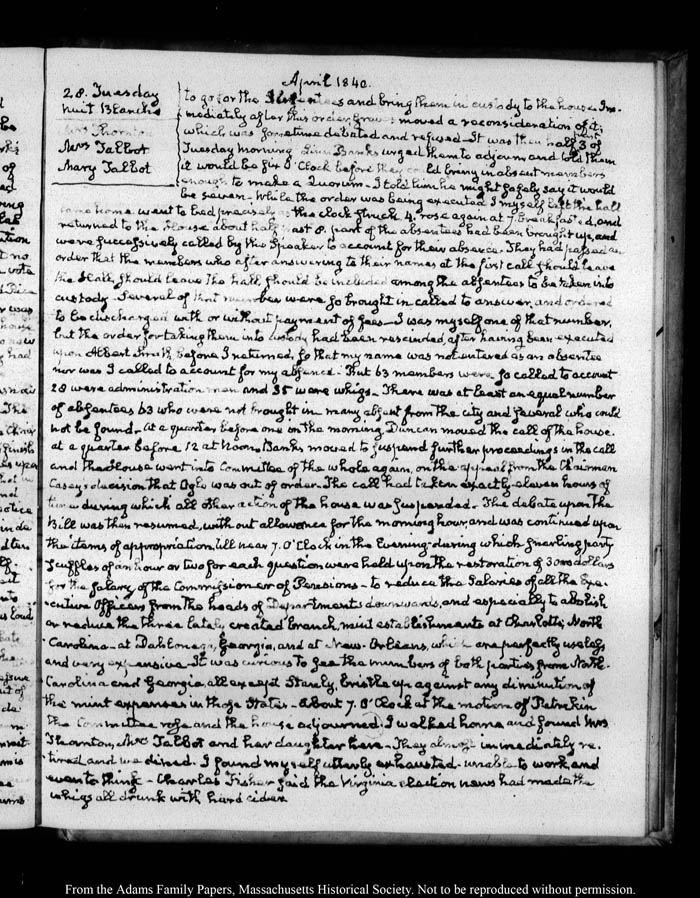 April 1840.
28. Tuesday
nuit Blanche
Mrs Thornton
Mrs Talbot
Mary Talbot
to go for the Absentees and bring them in custody to the house. Im-
mediately after this order, moved a reconsideration of it;
which was sometime debated and refused. It was then half past 3 of
Tuesday morning. Linn Banks urged them to adjourn and told them
it would be six O'Clock before they could bring in absent members
enough to make a Quorum. I told him he might safely say it would
be seven. While the order was being executed I myself left the hall
came home went to bed precisely as the clock struck 4. rose again at 7. breakfasted, and
returned to the House about half past 8. part of the absentees had been brought up, and
were successively called by the Speaker to account for their absence. They had passed an
order that the members who after answering to their names at the first call should leave
the Hall, should leave the hall, should be included among the absentees to be taken into
custody. Several of that number were so brought in called to answer, and ordered
to be discharged with or without payment of fees. I was myself one of that number,
but the order for taking them into custody had been rescinded, after having been executed
upon Albert Smith, before I returned, so that my name was not entered as an absentee
nor was I called to account for my absence. But 63 members were so called to account
28 were administration men and 35 were whigs. There was at least an equal number
of absentees 63 who were not brought in many absent from the city and several who could
not be found. At a quarter before one on the morning, Duncan moved the call of the house.
at a quarter before 12 at Noon, Banks moved to suspend further proceedings in the call
and the House went into Committee of the whole again, on the appeal from the Chairman
Casey's decision that Ogle was out of order. The call had taken exactly eleven hours of
time during which all other action of the house was suspended. The debate upon the
Bill was then resumed, without allowance for the morning hour, and was continued upon
the items of appropriation, till near 7. O'Clock in the Evening during which snarling party
scuffles of an hour or two for each question were held upon the restoration of 3000 dollars
for the salary of the Commissioner of Pensions - to reduce the Salaries of all the Exe-
cutive Officers from the heads of Departments downwards, and especially to abolish
or reduce the three lately created branch mint establishments at Charlotte, North
Carolina - at Dahlonega, Georgia, and at New-Orleans, which are perfectly useless
and very expensive. It was curious to see the members of both parties from North-
Carolina and Georgia, all except Stanly, bristle up against any diminution of
the mint expenses in those States. About 7. O'Clock at the motion of Petrikin
the Committee rose and the house adjourned. I walked home and found Mrs
Thornton, Mrs Talbot and her daughter here. They almost immediately re-
tired and we dined. I found myself utterly exhausted - unable to work, and
even to think - Charles Fisher said the Virginia election news had made the
whigs all drunk with hard cider.
From the Adams Family Papers, Massachusetts Historical Society. Not to be reproduced without permission.